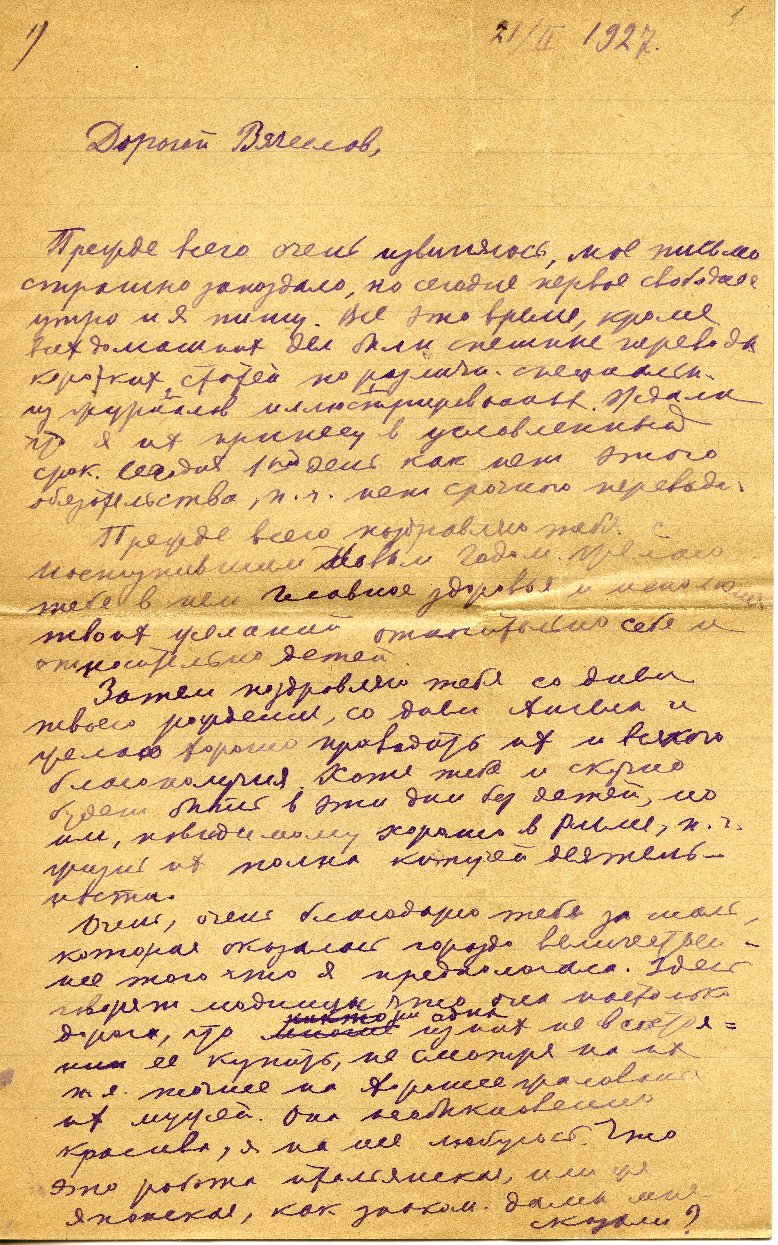 1)
21/II 1927.
Дорогой Вячеслов,
Прежде всего очень извиняюсь, мое письмо
страшно запоздало, но сегодня первое свободное
утро и я пишу. Все это время, кроме
всех домашних дел были спешные переводы
коротких статей по различн. специальн.
из журналов иллюстрированных. Ждали
что я их принесу в условленный
срок. Сегодня 1ый день как нет этого
обязательства, п. ч. нет срочного перевода.
Прежде всего поздравляю тебя с
поступившим Новым Годом. Желаю
тебе в нем главное здоровья и исполнения
твоих желаний относительно себя и
относительно детей.
Затем поздравляю тебя со днем
твоего рождения, со днем Ангела и
желаю хорошо проводить их и всякого
благополучия. Хоть тебе и скучно
будет быть в эти дни без детей, но
им, повидимому хорошо в Риме, п. ч.
жизнь их полна кипучей деятель-
ности.
Очень, очень благодарю тебя за шаль,
которая оказалась гораздо величествен-
нее того что я предполагала. Здесь
говорят модницы что она настолько
дорога, что никто ни одна из них не в состоя=
нии ее купить, не смотря на их
т. е. точнее на хорошее жалование
их мужей. Она необыкновенно
красива, я на нее любуюсь. Что
это работа итальянская, или же
японская, как знаком. дамы мне
сказали?